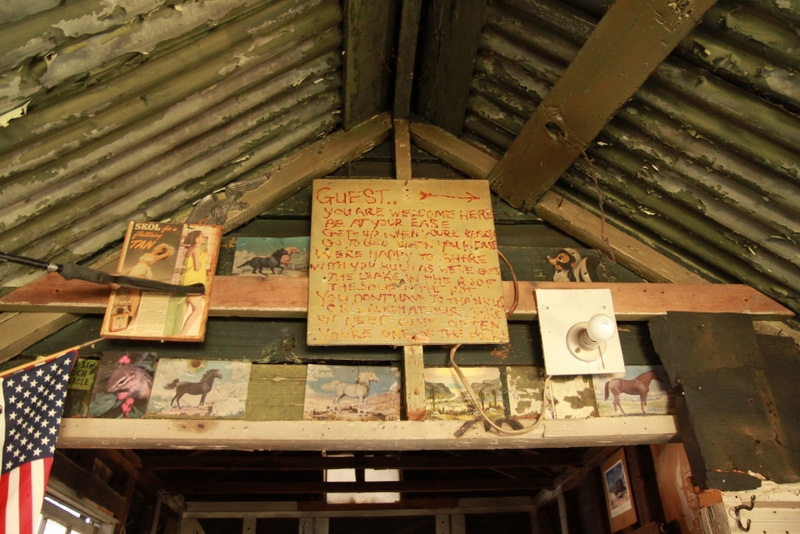 GUEST..
YOU ARE WELCOME HERE
BE AT YOUR EASE
GET UP WHEN YOU'RE READY
GO TO BED WHEN YOU PLEASE
WERE HAPPY TO SHARE
WITH YOU SUCH AS WE'VE GOT
THE LEAKS IN THE ROOF
THE SOUP IN THE POT
YOU DON'T HAVE TO THANK US
OR LAUGH AT OUR JOKES
SIT DEEP COME OFTEN
YOU'RE ONE OF THE
SKOL for a
TAN